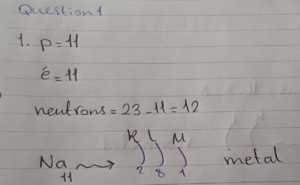 Question 1
1. p = 11
é = 11
neutrons = 23 - 11 = 12
K L M
Na metal
11 2 8 1